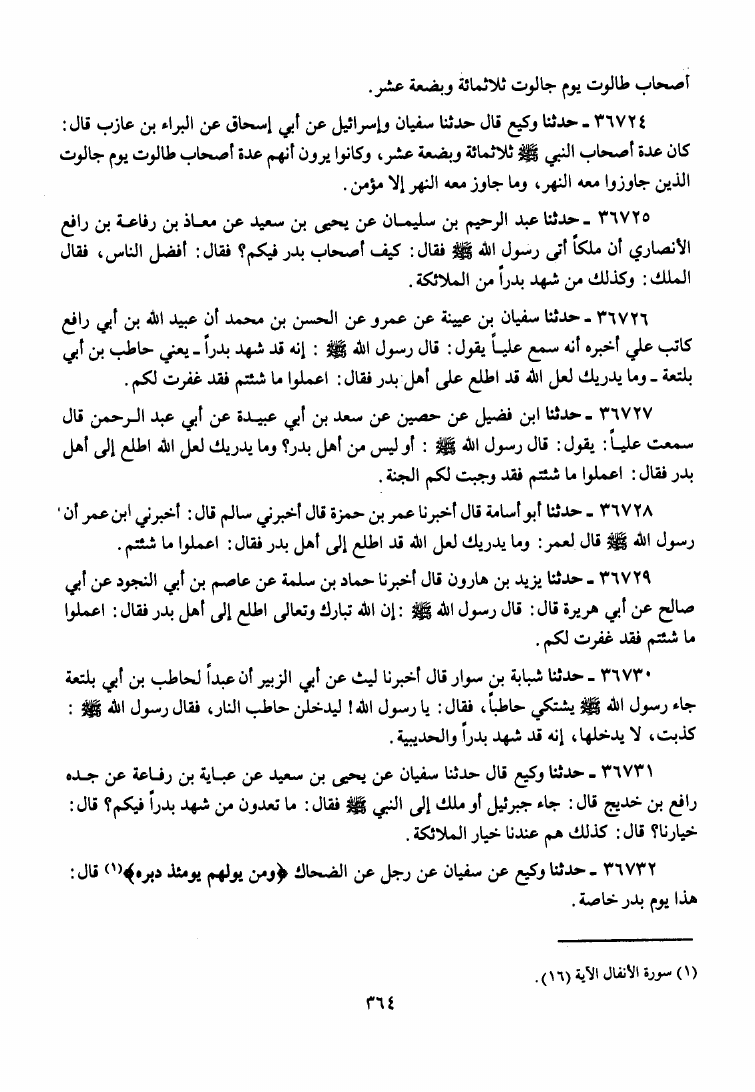 أصحاب طالوت يوم جالوت ثلاثمائة وبضعة عشر.
٣٦٧٢٤ ـ حدثنا وكيع قال حدثنا سفيان وإسرائيل عن أبي إسحاق عن البراء بن عازب قال:
كان عدة أصحاب النبي ﷺ ثلاثمائة وبضعة عشر، وكانوا يرون أنهم عدة أصحاب طالوت يوم جالوت
الذين جاوزوا معه النهر، وما جاوز معه النهر إلا مؤمن.
٣٦٧٢٥ ـ حدثنا عبد الرحيم بن سليمان عن يحيى بن سعيد عن معاذ بن رفاعة بن رافع
الأنصاري أن ملكاً أتى رسول الله ﷺ فقال: كيف أصحاب بدر فيكم؟ فقال: أفضل الناس، فقال
الملك: وكذلك من شهد بدراً من الملائكة.
٣٦٧٢٦ ـ حدثنا سفيان بن عيينة عن عمرو عن الحسن بن محمد أن عبيد الله بن أبي رافع
كاتب علي أخبره أنه سمع علياً يقول: قال رسول الله ﷺ : إنه قد شهد بدراً ـ يعني حاطب بن أبي
بلتعة ـ وما يدريك لعل الله قد اطلع على أهل بدر فقال: اعملوا ما شئتم فقد غفرت لكم.
٣٦٧٢٧ ـ حدثنا ابن فضيل عن حصين عن سعد بن أبي عبيدة عن أبي عبد الرحمن قال
سمعت علياً: يقول: قال رسول الله ﷺ : أوليس من أهل بدر؟ وما يدريك لعل الله اطلع إلى أهل
بدر فقال: اعملوا ما شئتم فقد وجبت لكم الجنة.
٣٦٧٢٨ ـ حدثنا أبو أسامة قال أخبرنا عمر بن حمزة قال أخبرني سالم قال: أخبرني ابن عمر أن
رسول الله ﷺ قال لعمر: وما يدريك لعل الله قد اطلع إلى أهل بدر فقال: اعملوا ما شئتم.
٣٦٧٢٩ ـ حدثنا يزيد بن هارون قال أخبرنا حماد بن سلمة عن عاصم بن أبي النجود عن أبي
صالح عن أبي هريرة قال: قال رسول الله ﷺ :إن الله تبارك وتعالى اطلع إلى أهل بدر فقال: اعملوا
ما شئتم فقد غفرت لكم.
٣٦٧٣٠ ـ حدثنا شبابة بن سوار قال أخبرنا ليث عن أبي الزبير أن عبداً لحاطب بن أبي بلتعة
جاء رسول الله ﷺ يشتكي حاطباً، فقال: يا رسول الله! ليدخلن حاطب النار، فقال رسول الله ﷺ :
كذبت، لا يدخلها، إنه قد شهد بدراً والحديبية.
٣٦٧٣١ ـ حدثنا وكيع قال حدثنا سفيان عن يحيى بن سعيد عن عباية بن رفاعة عن جده
رافع بن خديج قال: جاء جبرئيل أو ملك إلى النبي ﷺ فقال: ما تعدون من شهد بدراً فيكم؟ قال:
خيارنا؟ قال: كذلك هم عندنا خيار الملائكة.
٣٦٧٣٢ ـ حدثنا وكيع عن سفيان عن رجل عن الضحاك ﴿ومن يولهم يومئذ دبره﴾(١) قال:
هذا يوم بدر خاصة.
(١) سورة الأنفال الآية (١٦).
٣٦٤